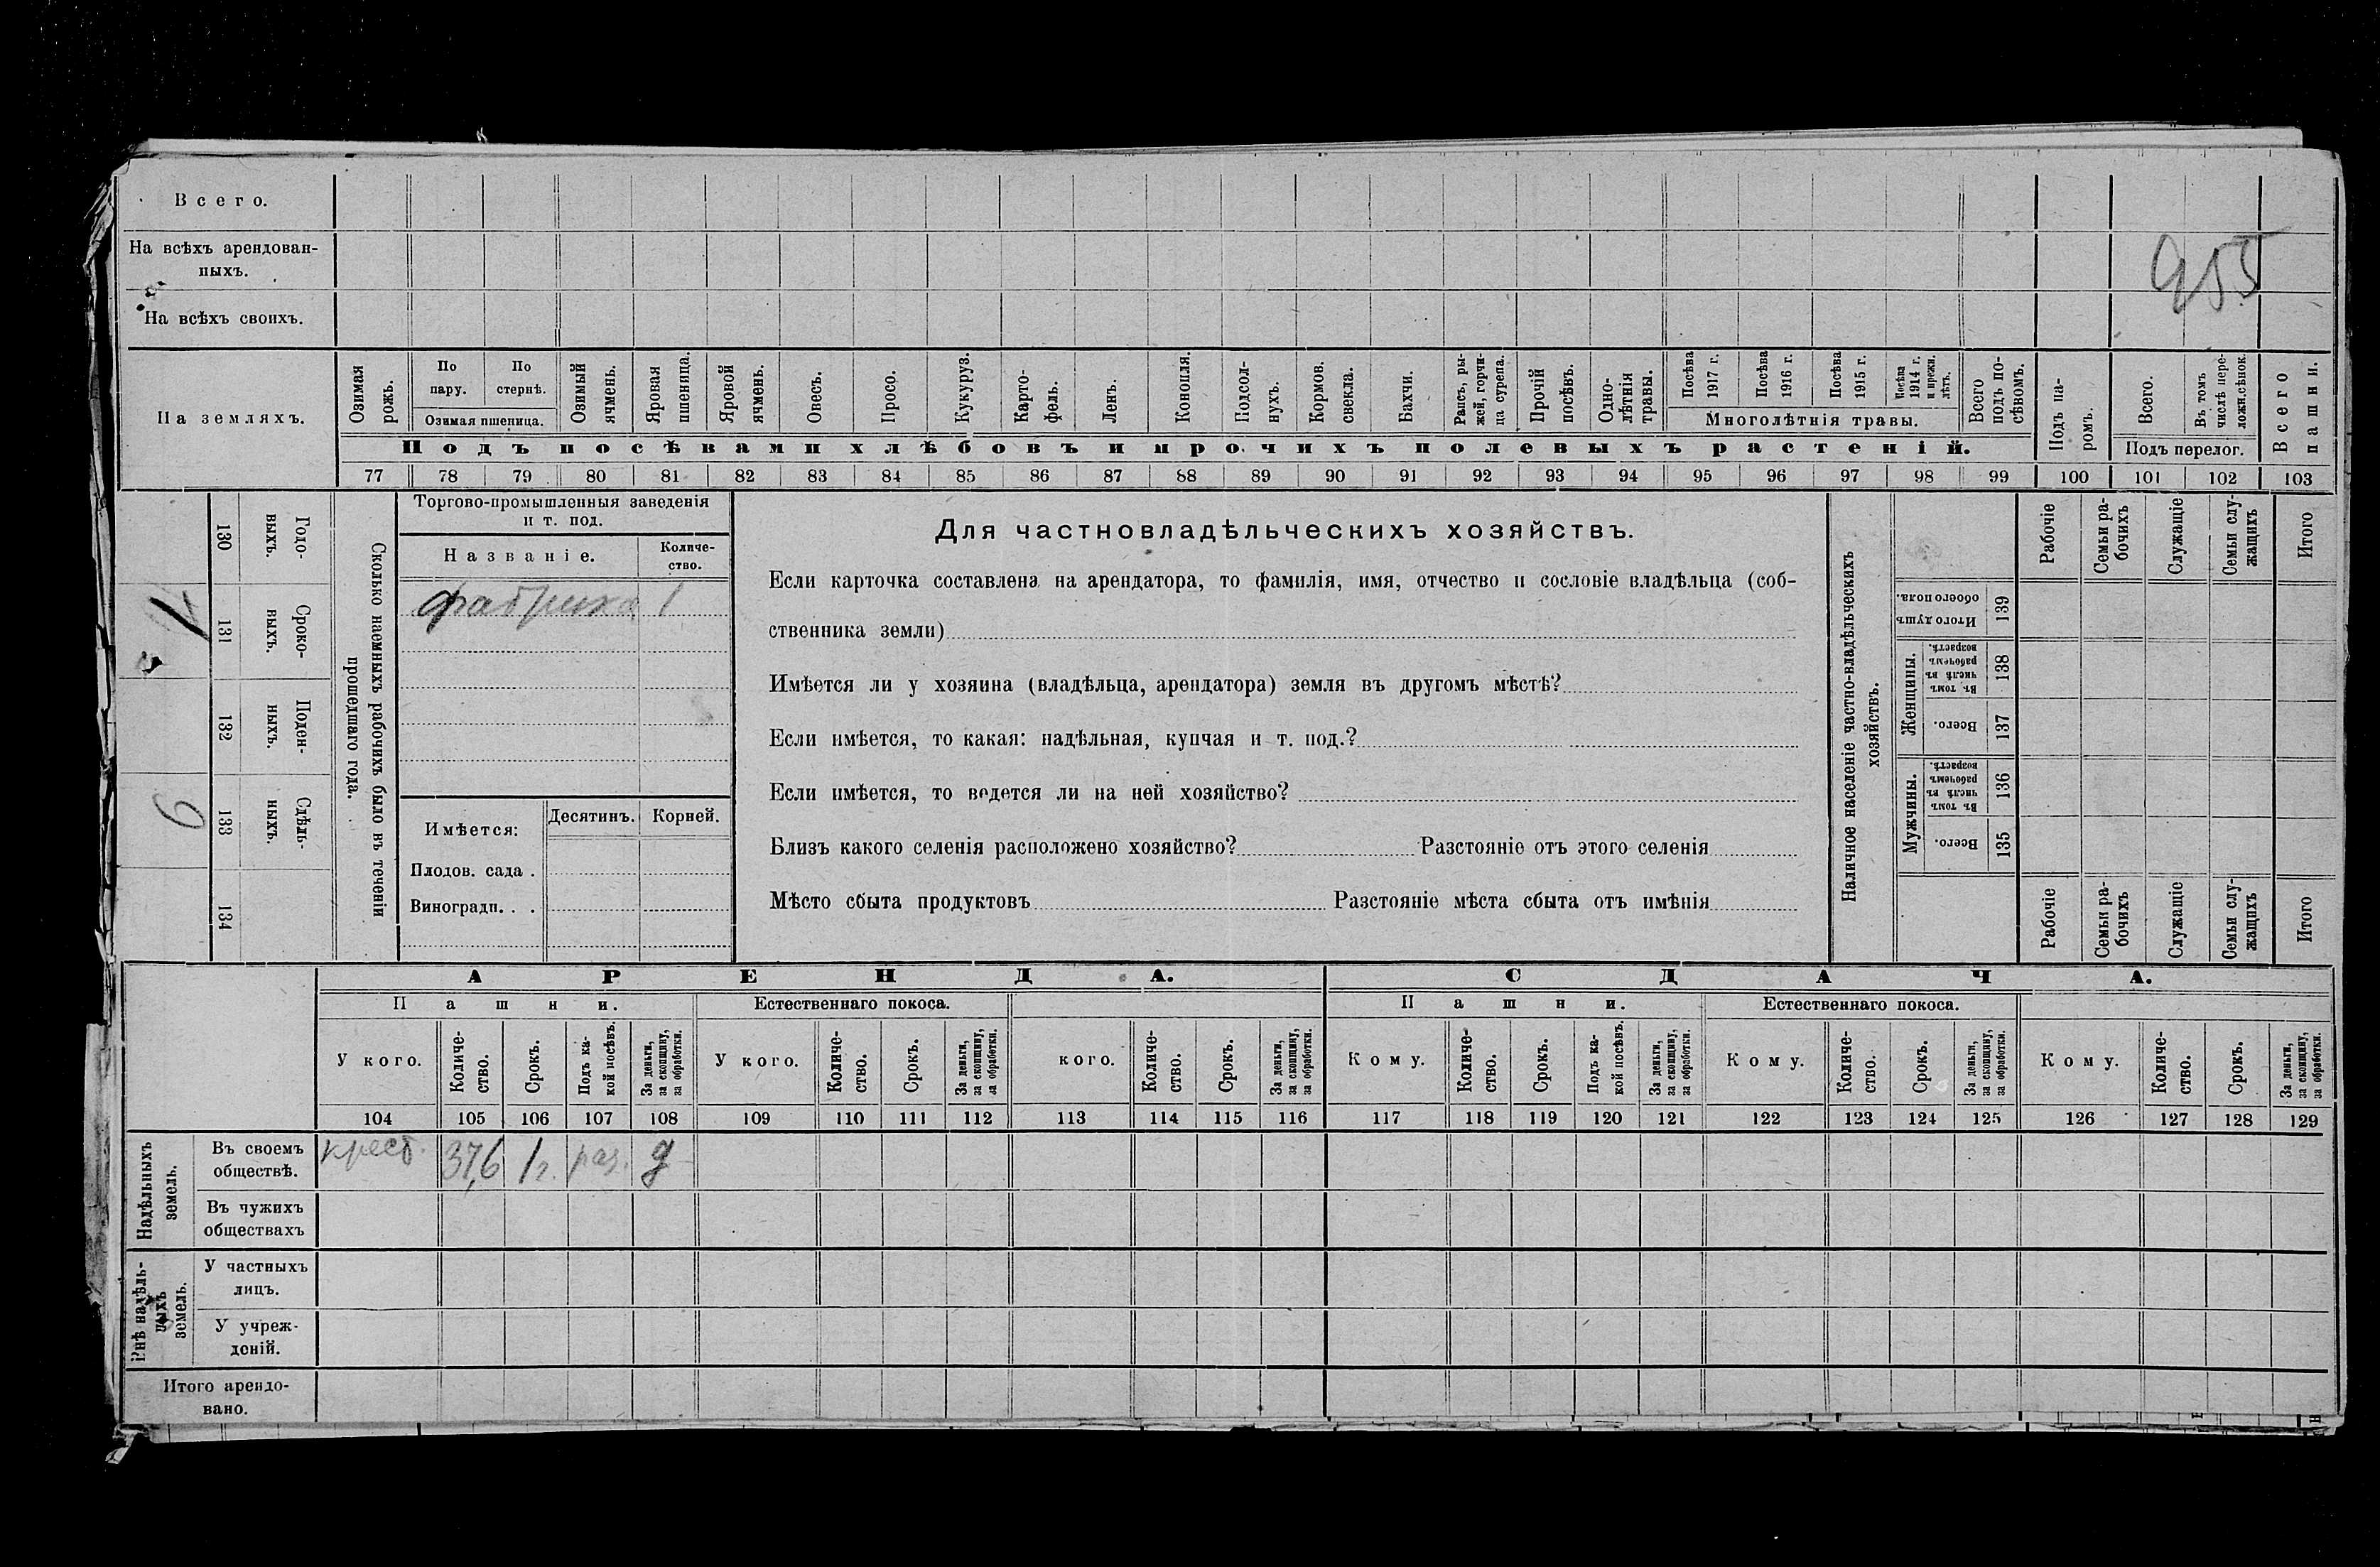 Всего.
На всѣхъ арендован-
ныхъ.
955
На всѣхъ своихъ.
На земляхъ.
Озимая рожь.
По пару.
По стернѣ.
Озимая пшеница.
Озимый ячмень.
Яровая пшеница.
Яровой ячмень.
Овесъ.
Просо.
Кукуруз.
Карто-
фель.
Ленъ.
Конопля.
Подсол-
нухъ.
Кормов. свекла.
Бахчи.
Рапсъ, ры-
жей, горчи-
ца сурепа.
Прочій посѣвъ.
Одно-
лѣтнія
травы.
Посѣва 1917 г.
Посѣва 1916 г.
Посѣва 1915 г.
Посѣва 1914 г. и прежн. лѣтъ.
Многолѣтнія травы.
Всего подъ по-
сѣвомъ.
Подъ посѣвами хлѣбовъ и прочихъ полевыхъ растеній.
Подъ па-
ромъ.
Всего.
Въ томъ числѣ пере-
ложн.сѣнок.
Подъ перелог.
Всего пашни.
77 78 79 80 81 82 83 84 85 86 87 88 89 90 91 92 93 94 95 96 97 98 99 100 101 102 103
Годо-
выхъ.
130
Сроко-
выхъ.
131
Поден-
ныхъ.
132
Сдѣль-
ныхъ.
133
134
Сколько наемныхъ рабочихъ было въ теченіи
прошедшаго года.
Торгово-промышленныя заведенія
и т. под.
Названіе.
Количе-
ство.
фабрика 1
Имѣется:
Десятинъ.
Корней.
Плодов. сада .
Виноградн. . .
Для частновладѣльческихъ хозяйствъ.
Если карточка составлена на арендатора, то фамилія, имя, отчество и сословіе владѣльца (соб-
ственника земли)
Имѣется ли у хозяина (владѣльца, арендатора) земля въ другомъ мѣстѣ?
Если имѣется, то какая: надѣльная, купчая и т. под.?
Если имѣется, то ведется ли на ней хозяйство?
Близъ какого селенія расположено хозяйство? Разстояніе отъ этого селенія
Мѣсто сбыта продуктовъ Разстояніе мѣста сбыта отъ имѣнія
Наличное населеніе частно-владѣльческихъ
хозяйствъ.
Рабочіе
Семьи ра-
бочихъ
Служащіе
Семьи слу-
жащихъ
Итого
Итого душъ обоего пола.
139
Женщины.
Въ томъ числѣ въ рабочемъ возрастѣ.
138
Всего.
137
Мужчины.
Въ томъ числѣ въ рабочемъ возрастѣ.
136
Всего.
135
Рабочіе
Семьи ра-
бочихъ
Служащіе
Семьи слу-
жащихъ
Итого
АРЕНДА.
СДАЧА.
Пашни.
Естественнаго покоса.
Пашни.
Естественнаго покоса.
У кого.
Количе-
ство.
Срокъ.
Подъ ка-
кой посѣвъ.
За деньги,
за скопщину,
за обработки.
У кого.
Количе-
ство.
Срокъ.
За деньги,
за скопщину,
за обработки.
кого.
Количе-
ство.
Срокъ.
За деньги,
за скопщину,
за обработки.
Кому.
Количе-
ство.
Срокъ.
Подъ ка-
кой посѣвъ.
За деньги,
за скопщину,
за обработки.
Кому.
Количе-
ство.
Срокъ.
За деньги,
за скопщину,
за обработки.
Кому.
Количе-
ство.
Срокъ.
За деньги,
за скопщину,
за обработки.
104 105 106 107 108 109 110 111 112 113 114 115 116 117 118 119 120 121 122 123 124 125 126 127 128 129
Надѣльныхъ
земель.
Въ своемъ
обществѣ.
крест. 37,6 1 г. раз. д
Въ чужихъ
обществахъ
Внѣ надѣль-
ныхъ
земель.
У частныхъ
лицъ.
У учреж-
деній.
Итого арендо-
вано.